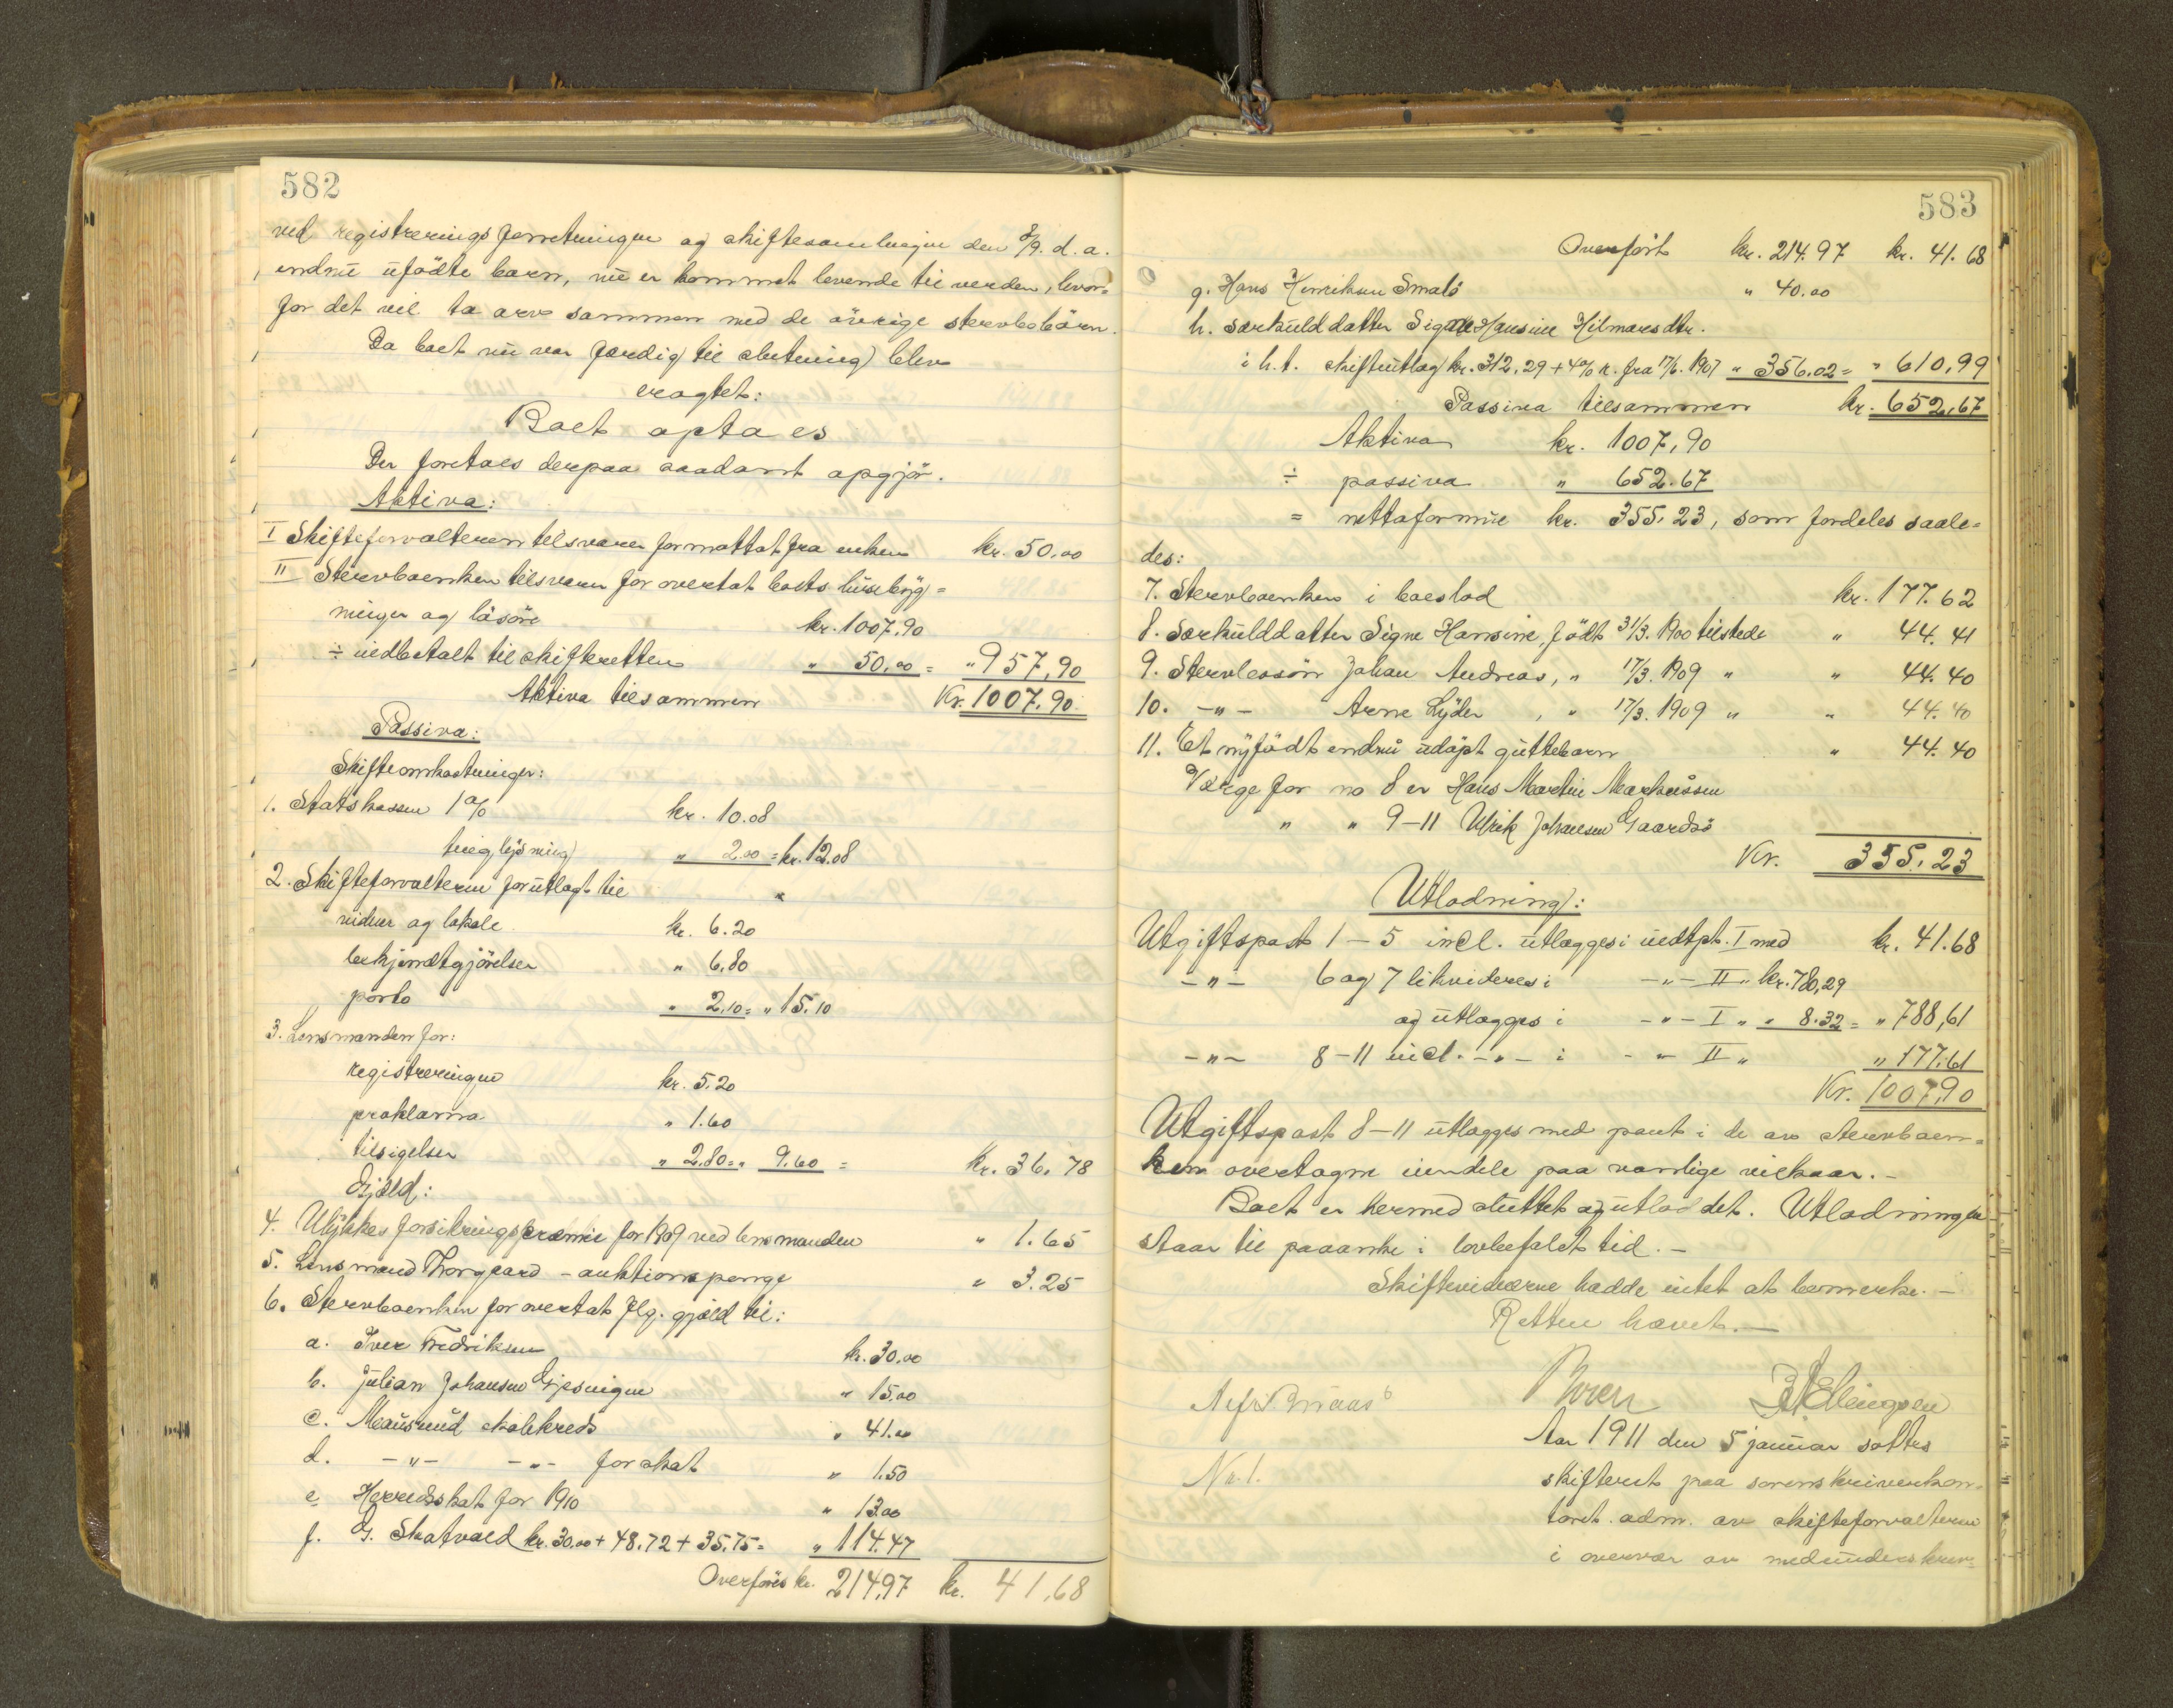 582
ved registreringsforretningen og skiftesamlingen den 8/9. d.a.
endnu ufödte barn, nu er kommet levende til verden, hvor-
for det vil ta arv sammen med de övrige stervbobörn.
Da boet nu var færdig til slutning blev
vragtet:
Boet optaes
Der foretaes derpaa saadant opgjör.
Aktiva:
I Skifteforvalteren tilsvarer formottat fra enken kr. 50.00
II Stervboenken tilsvarer for overtat boets husebyg=
ninger og lösöre kr. 1007.90
÷ indbetalt til skifteretten " 50,00 = " 957,90
Aktiva tilsammen Kr. 1007.90
Passiva:
Skifteomkostninger:
1. Statskassen 1% kr. 10.08
tinglysning " 2.00 = kr. 12.08
2. Skifteforvalteren forutlagt til "
vidner og lokale kr. 6.20
bekjendtgjörelser " 6,80
porto " 2,10 = " 15.10
3. Lensmanden for:
registreringen kr. 5.20
proklama " 1.60
tilsigelser " 2.80 = " 9.60 = kr. 36.78
Gjæld:
4. Ulykkesforsikringspræmie for 1909 ved lensmanden " 1.65
5. Lensmand Thorgaard - auktionspenge " 3.25
6. Stervboenken for overtat flg. gjæld til:
a. Iver Fredriksen kr. 30.00
b. Julian Johansen Gjesingen " 15.00
c. Mausund skolekreds " 41.00
d. -"- -"- for skat " 1.50
e. Herredsskat for 1910 " 13.00
f. G. Skatvold kr. 30.00 + 48.72 + 35.75 = " 114.47
Overföres kr. 214,97 kr. 41,68
583
Overfört kr. 214.97 kr. 41.68
g. Hans Henriksen Smalö " 40.00
h. særkulddatter Signe Hansine Hilmarsdtr.
i h.t. skifteutlæg kr. 312,29 + 4% r. fra 17/6. 1907 " 356,02 = " 610,99
Passiva tilsammen kr. 652,67
Aktiva kr. 1007,90
÷ passiva " 652.67
= nettoformue kr. 355.23, som fordeles saale=
des:
7. Stervboenken i boeslod kr. 177.62
8. Særkulddatter Signe Hansine, födt 31/3. 1900 tilstede " 44.41
9. Stervbossön Johan Andreas, " 17/3. 1909 " " 44.40
10. -"- Arne Lyder, " 17/3. 1909 " " 44.40
11. Et nyfödt endnu udöpt guttebarn " 44.40
Værge for no 8 er Hans Martin Markussen
" " 9-11 Ulrik Johansen Gaardsö
Kr. 355.23
Utlodning:
Utgiftspost 1-5 incl. utlægges i indtpt. I med kr. 41.68
-"- 6 og 7 likvideres i -"- II " kr. 780,29
og utlægges i -"- I " " 8.32 = " 788,61
-"- 8-11 incl. -"- i -"- II " " 177.61
Kr. 1007,90
Utgiftspost 8-11 utlægges med pant i de av stervboen=
ken overtagne eiendele paa vanlige vilkaar.-
Boet er hermed sluttet og utloddet. Utlodningen
staar til paaanke i lovbefalet tid.-
Skiftevidnerne hadde intet at bemerke.-
Retten hævet.-
Ellingsen
Aar 1911 den 5 januar sattes
Nr. 1. skifteret paa sorenskriverkon-
toret adm. av skifteforvalteren
i overvær av medunderskrev-